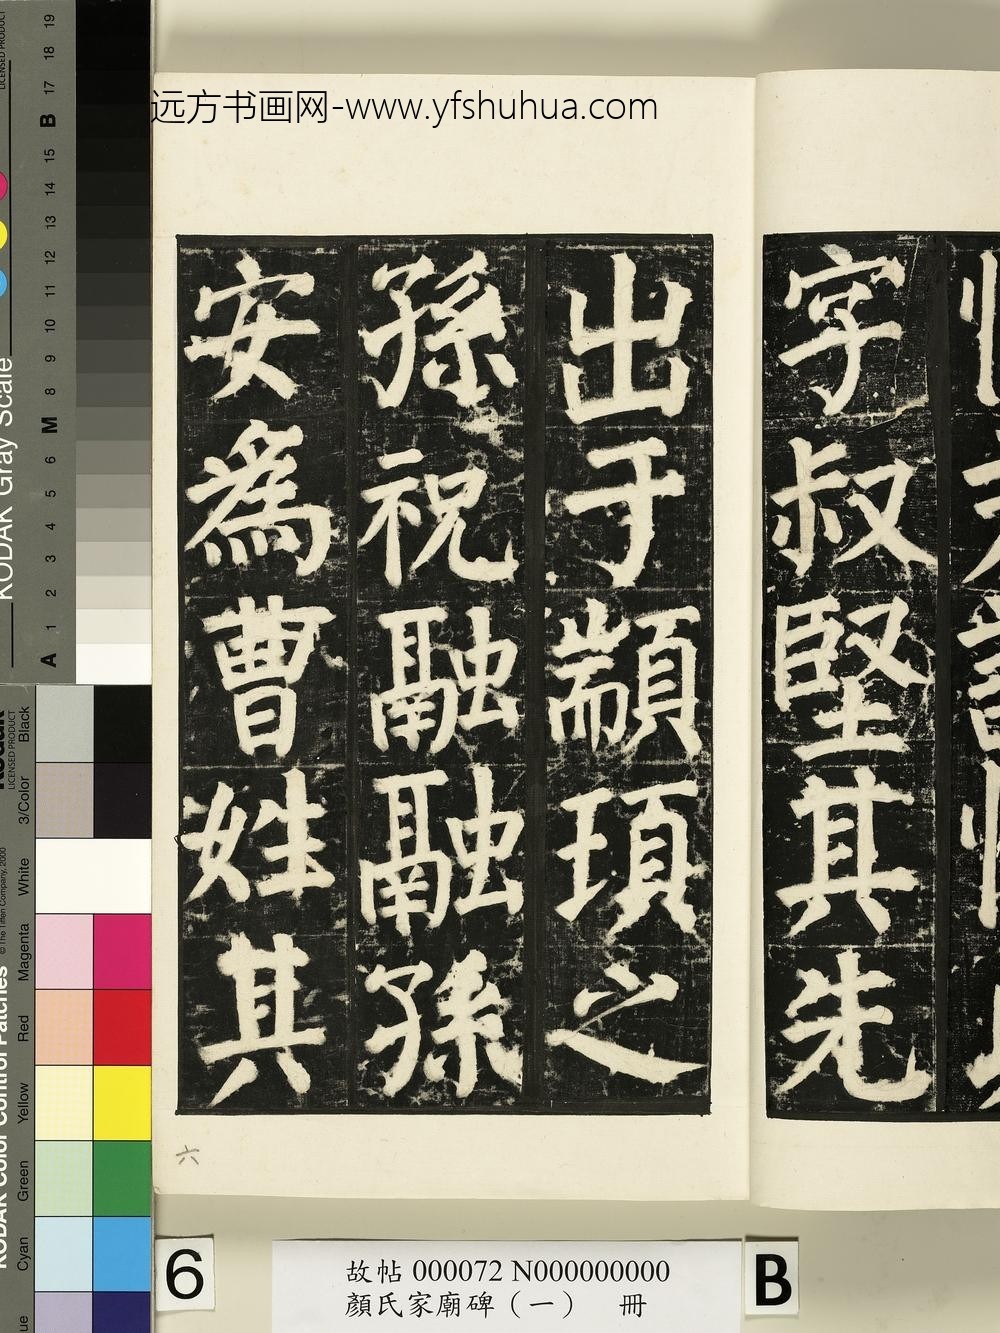 远方书画网-www.yfshuhua.com
字叔堅其先
出于顓頊之
孫祝融融孫
安為曹姓其
六
6
故帖 000072 N000000000
顏氏家廟碑（一） 冊
B
KODAK Gray Scale
LICENSED PRODUCT
A 1 2 3 4 5 6 M 8 9 10 11 12 13 14 15 B 17 18 19
KODAK Color Control Patches
© The Tiffen Company, 2000
LICENSED PRODUCT
Cyan Green Yellow Red Magenta White 3/Color Black